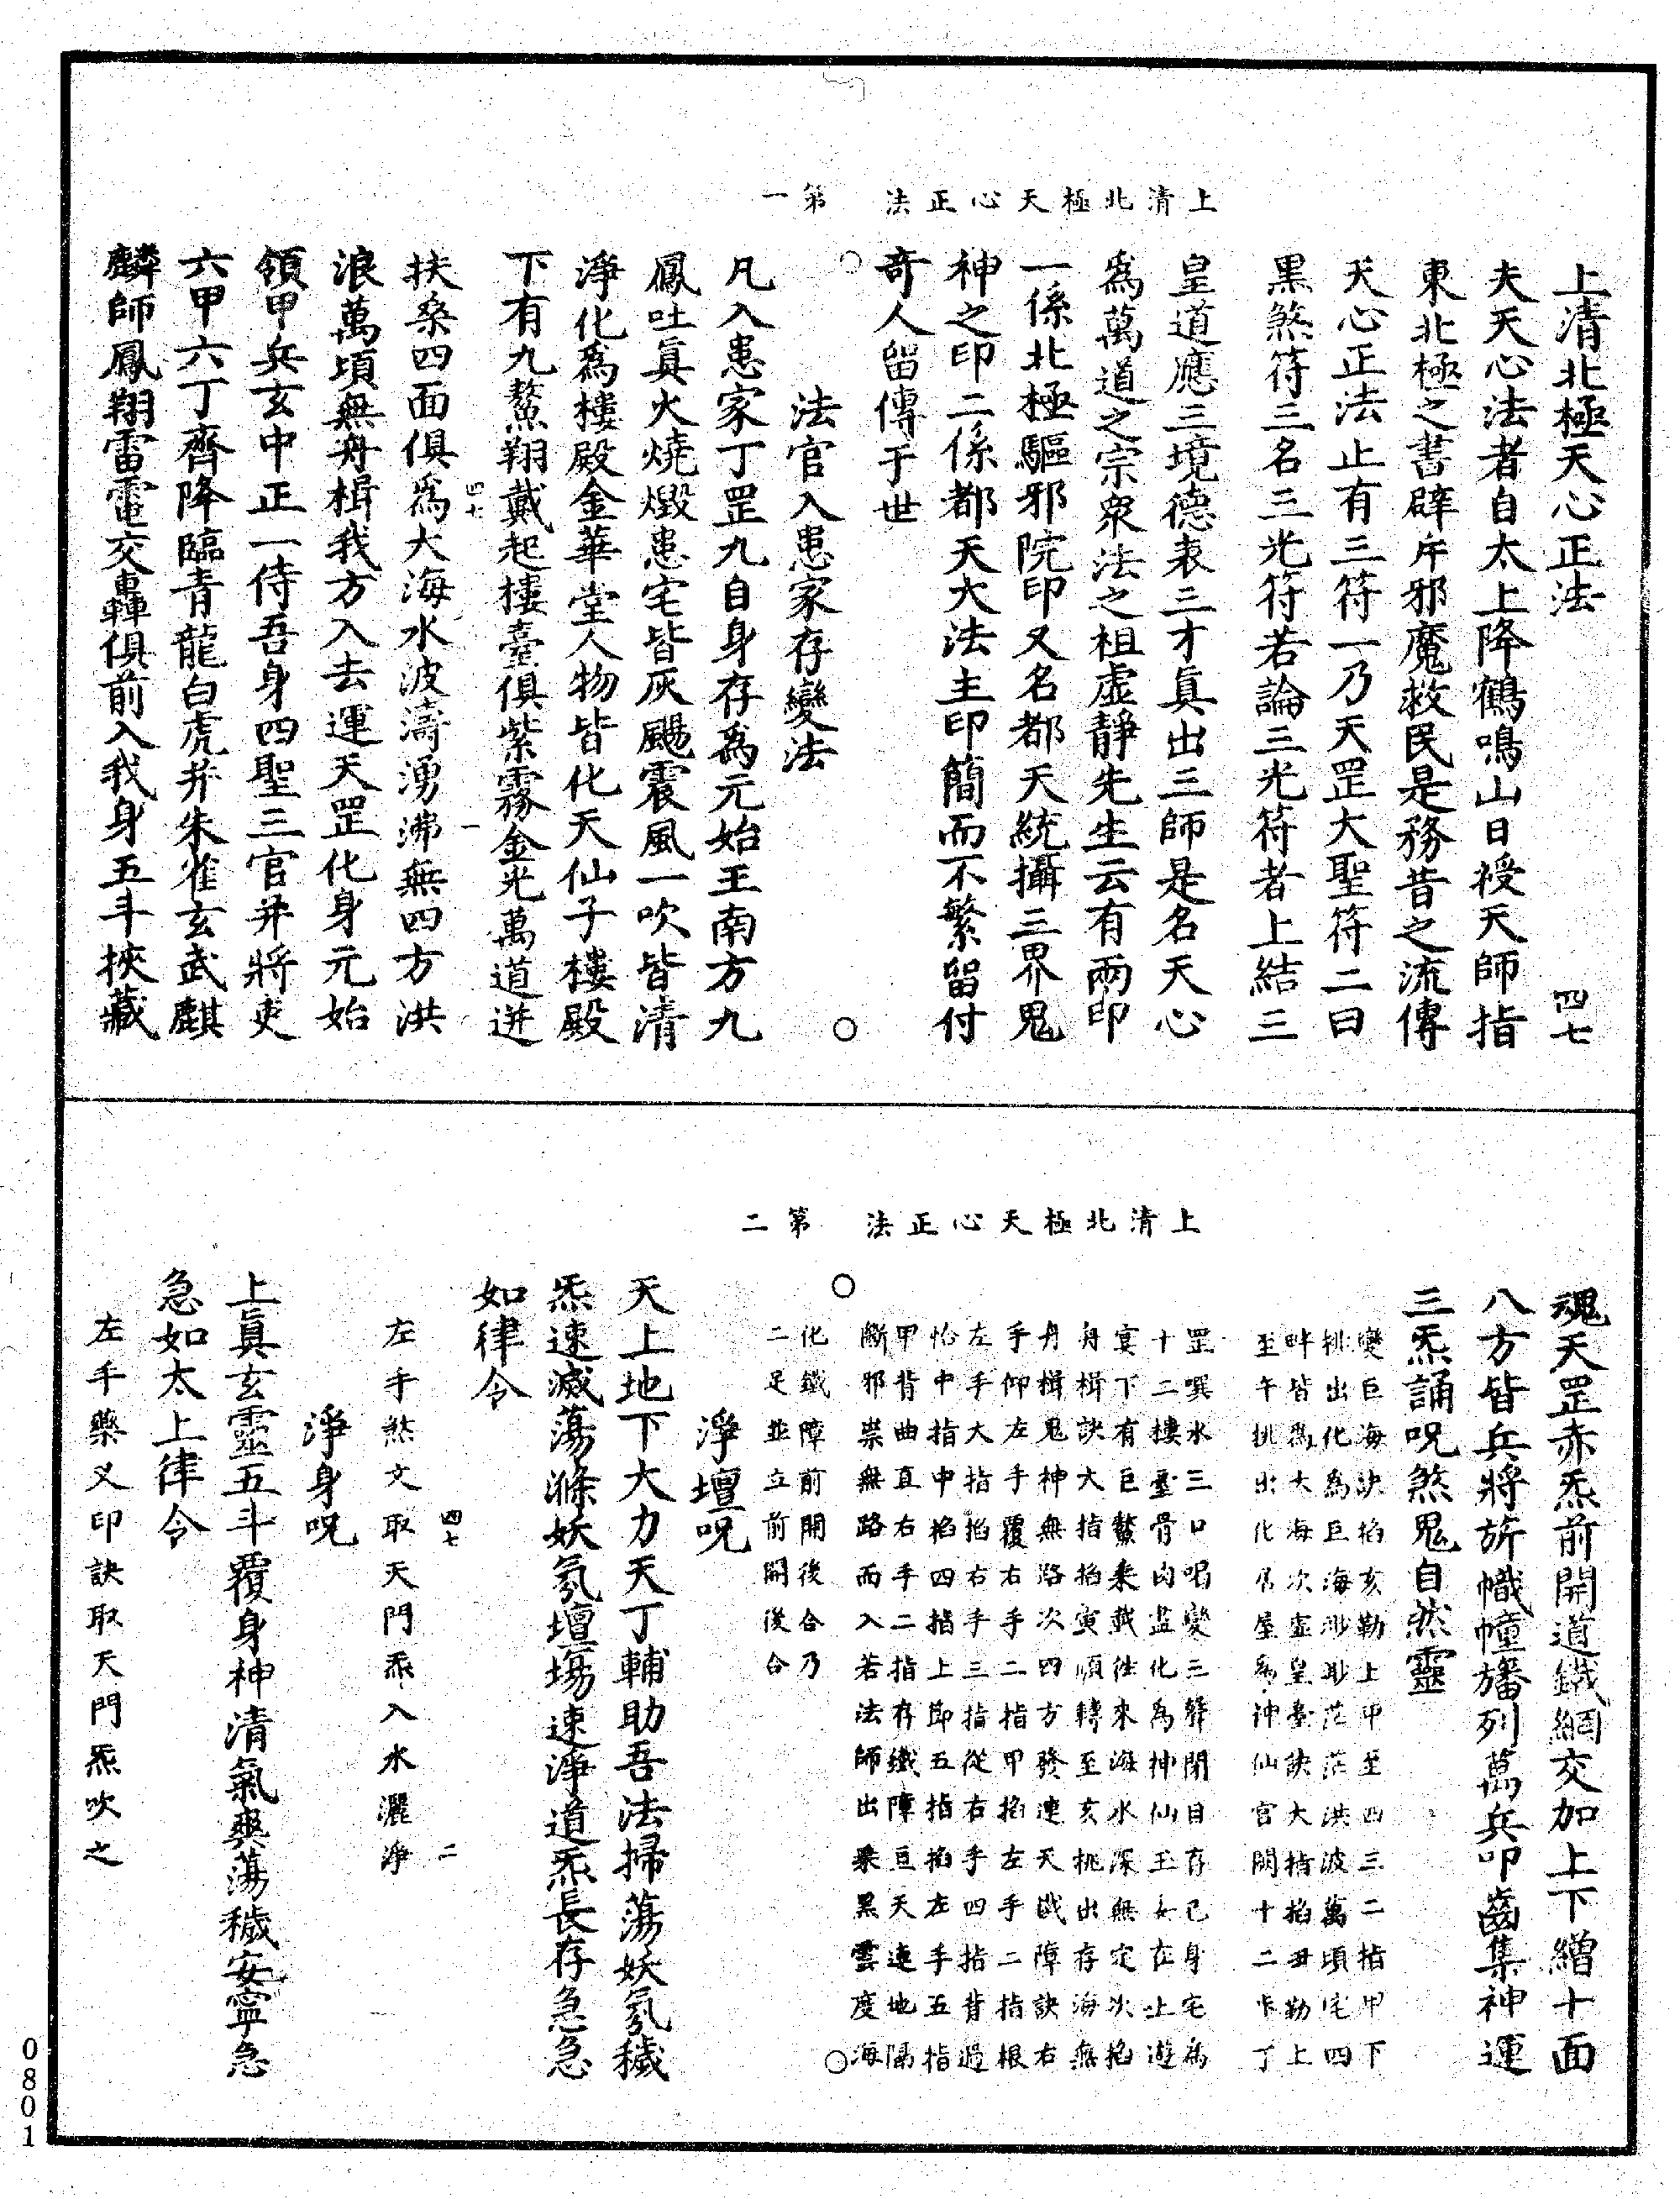 上清北極天心正法
四七
夫天心法者自太上降鶴鳴山日授天師指
東北極之書辟斥邪魔救民是務昔之流傳
天心正法止有三符一乃天罡大聖符二曰
黑煞符三名三光符若論三光符者上結三
皇道應三境德表三才眞出三師是名天心
爲萬道之宗衆法之祖虚靜先生云有兩印
一係北極驅邪院印又名都天統攝三界鬼
神之印二係都天大法主印簡而不繁留付
奇人留傳于世
上清北極天心正法 第一
法官入患家存變法
凡入患家丁罡九自身存爲元始王南方九
鳳吐眞火燒燬患宅皆灰颺震風一吹皆清
淨化爲樓殿金華堂人物皆化天仙子樓殿
下有九鰲翔戴起樓臺俱紫霧金光萬道迸
四七 一
扶桑四面俱爲大海水波濤湧沸無四方洪
浪萬頃無舟楫我方入去運天罡化身元始
領甲兵玄中正一侍吾身四聖三官并將吏
六甲六丁齊降臨青龍白虎并朱雀玄武麒
麟師鳳翔雷電交轟俱前入我身五斗挾藏
魂天罡赤炁前開道鐵網交加上下繒十面
八方皆兵將旂幟幢旛列萬兵叩齒集神運
三炁誦呪煞鬼自然靈
變巨海訣掐亥勒上甲至四三二指甲下
挑出化爲巨海渺渺茫茫洪波萬頃宅四
畔皆爲大海次虛皇臺訣大指掐丑勒上
至午挑出化吊屋爲神仙宮闕十二步丁
罡噀水三口喝變三聲閉目存己身宅爲
十二樓臺骨肉盡化爲神仙玉女在上遊
宴下有巨鰲乘戴往來海水深無定次掐
舟楫訣大指掐寅順轉至亥挑出存海無
舟楫鬼神無路次四方發連天鐵障訣右
手仰左手覆右手二指甲掐左手二指根
左手大指掐右手三指從右手四指背過
怡中指中掐四指上節五指掐左手五指
甲背曲直右手二指存鐵障亘天連地隔
斷邪祟無路而入若法師出乘黑雲度海
上清北極天心正法 第二
化鐵障前開後合乃
二足並立前開後合
淨壇呪
天上地下大力天丁輔助吾法掃蕩妖氛穢
炁速滅蕩滌妖氛壇場速淨道炁長存急急
如律令
四七 二
左手煞文取天門炁入水灑淨
淨身呪
上眞玄靈五斗覆身神清氣爽蕩穢安寧急
急如太上律令
左手藥叉印訣取天門炁吹之
0801